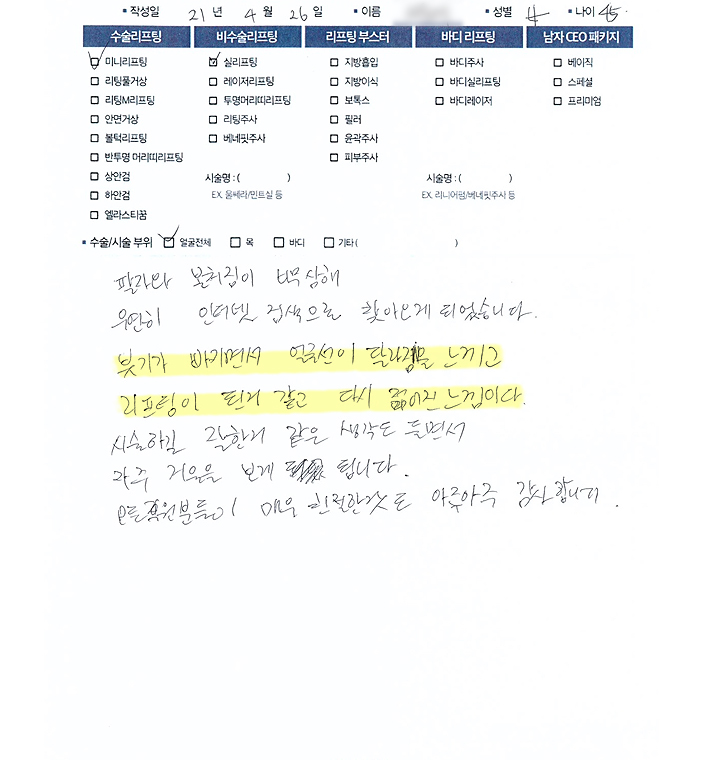 ▪ 작성일 21 년 4 월 26 일 ▪ 이름 ▪ 성별 ▪ 나이 45
수술리프팅 비수술리프팅 리프팅 부스터 바디 리프팅 남자 CEO 패키지
미니리프팅 실리프팅 지방흡입 바디주사 베이직
리팅풀거상 레이저리프팅 지방이식 바디실리프팅 스페셜
리팅M리프팅 투명머리띠리프팅 보톡스 바디레이저 프리미엄
안면거상 리팅주사 필러
볼턱리프팅 베네핏주사 윤곽주사
반투명 머리띠리프팅 피부주사
상안검 시술명 : ( ) 시술명 : ( )
하안검 EX. 울쎄라/민트실 등 EX. 리니어펌/베네핏주사 등
엘라스티꿈
▪ 수술/시술 부위 얼굴전체 목 바디 기타 ( )
팔자와 볼처짐이 너무 심해
우연히 인터넷 검색으로 찾아오게 되었습니다.
붓기가 빠지면서 얼굴선이 달라짐을 느끼고
리프팅이 된거 같고 다시 젊어진 느낌이다.
시술하길 잘한거 같은 생각도 들면서
자주 거울을 보게 됩니다.
모든 직원분들이 매우 친절한것도 아주아주 감사합니다.